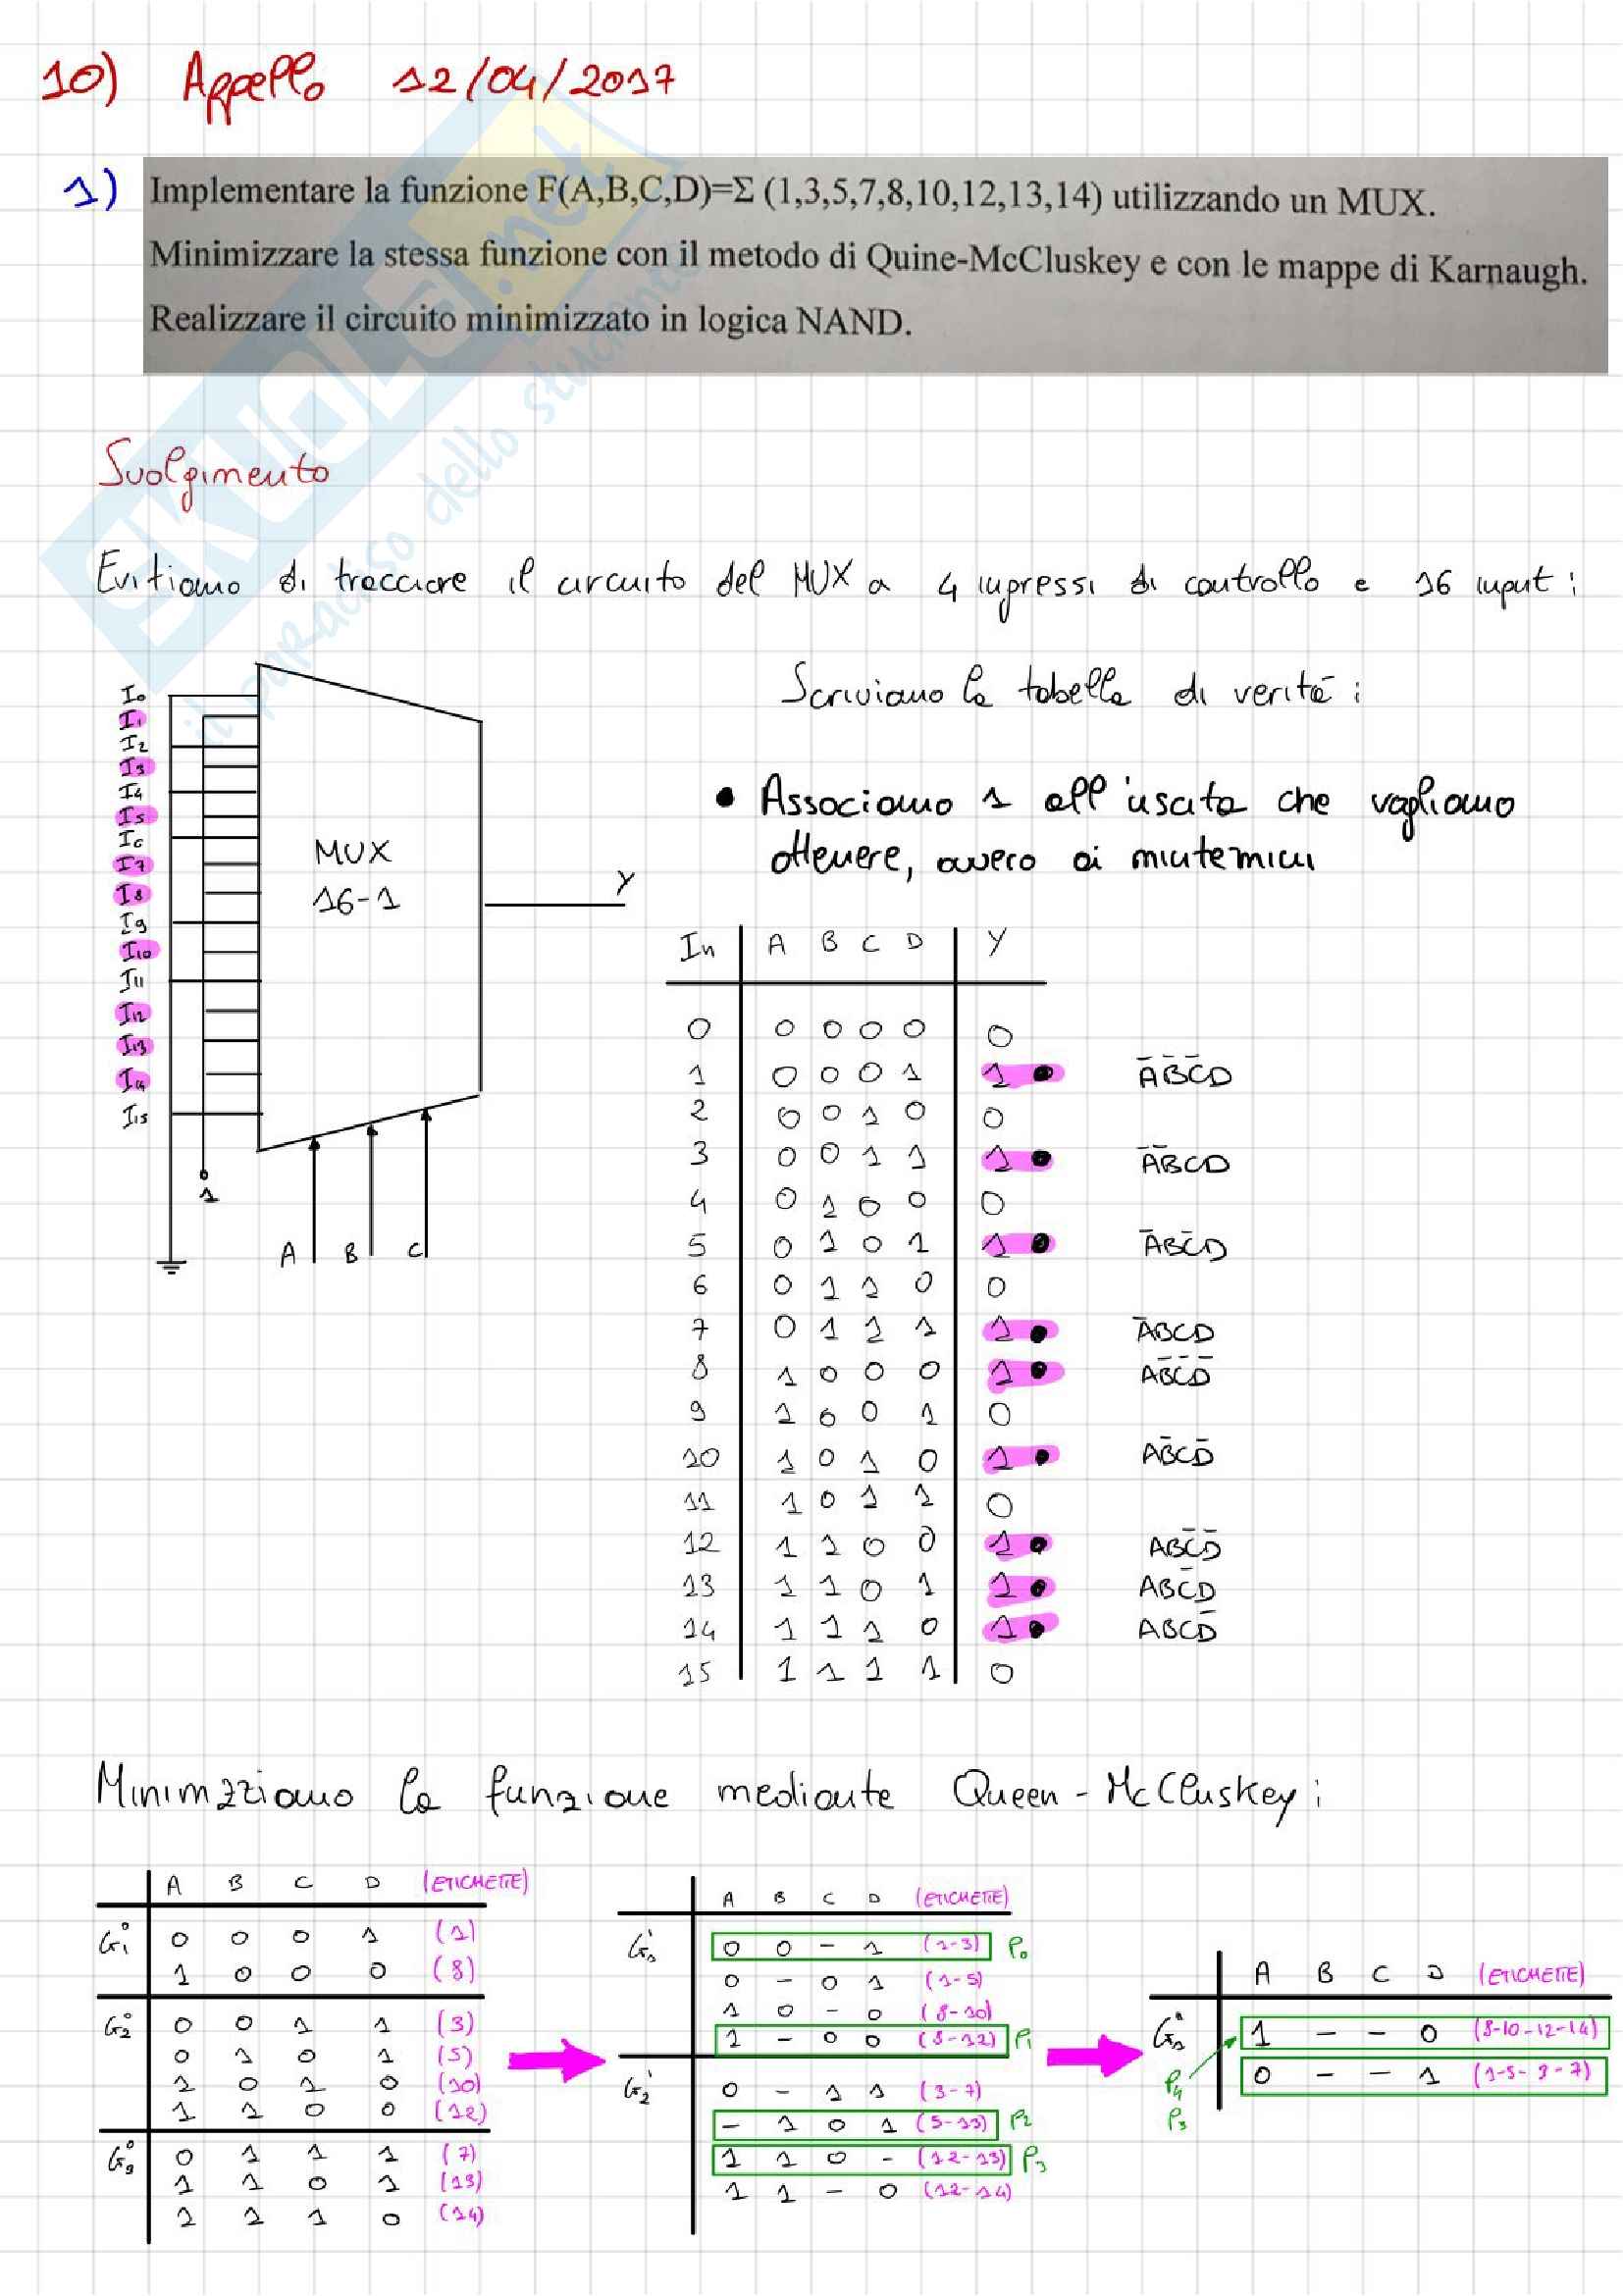 10) Appello 12/04/2017
1) Implementare la funzione F(A,B,C,D)=Σ (1,3,5,7,8,10,12,13,14) utilizzando un MUX.
Minimizzare la stessa funzione con il metodo di Quine-McCluskey e con le mappe di Karnaugh.
Realizzare il circuito minimizzato in logica NAND.
SKUOLA.net
il paradiso dello studente
Svolgimento
Evitiamo di tracciare il circuito del MUX a 4 ingressi di controllo e 16 input:
Scriviamo la tabella di verità:
• Associamo 1 all'uscita che vogliamo
ottenere, ovvero ai mintermini
I0
I1
I2
I3
I4
I5
I6
I7
I8
I9
I10
I11
I12
I13
I14
I15
MUX
16-1
Y
1
A B C
In A B C D Y
0 0 0 0 0 0
1 0 0 0 1 1 A̅B̅C̅D
2 0 0 1 0 0
3 0 0 1 1 1 A̅B̅CD
4 0 1 0 0 0
5 0 1 0 1 1 A̅BC̅D
6 0 1 1 0 0
7 0 1 1 1 1 A̅BCD
8 1 0 0 0 1 AB̅C̅D̅
9 1 0 0 1 0
10 1 0 1 0 1 AB̅CD̅
11 1 0 1 1 0
12 1 1 0 0 1 ABC̅D̅
13 1 1 0 1 1 ABC̅D
14 1 1 1 0 1 ABCD̅
15 1 1 1 1 0
Minimizziamo la funzione mediante Queen-McCluskey:
A B C D (ETICHETTE)
G1⁰ 0 0 0 1 (1)
1 0 0 0 (8)
G2⁰ 0 0 1 1 (3)
0 1 0 1 (5)
1 0 1 0 (10)
1 1 0 0 (12)
G3⁰ 0 1 1 1 (7)
1 1 0 1 (13)
1 1 1 0 (14)
A B C D (ETICHETTE)
G1¹ 0 0 - 1 (1-3) P0
0 - 0 1 (1-5)
1 0 - 0 (8-10)
1 - 0 0 (8-12) P1
G2¹ 0 - 1 1 (3-7)
- 1 0 1 (5-13) P2
1 1 0 - (12-13) P3
1 1 - 0 (12-14)
A B C D (ETICHETTE)
1 - - 0 (8-10-12-14)
0 - - 1 (1-5-3-7)
P4
P5